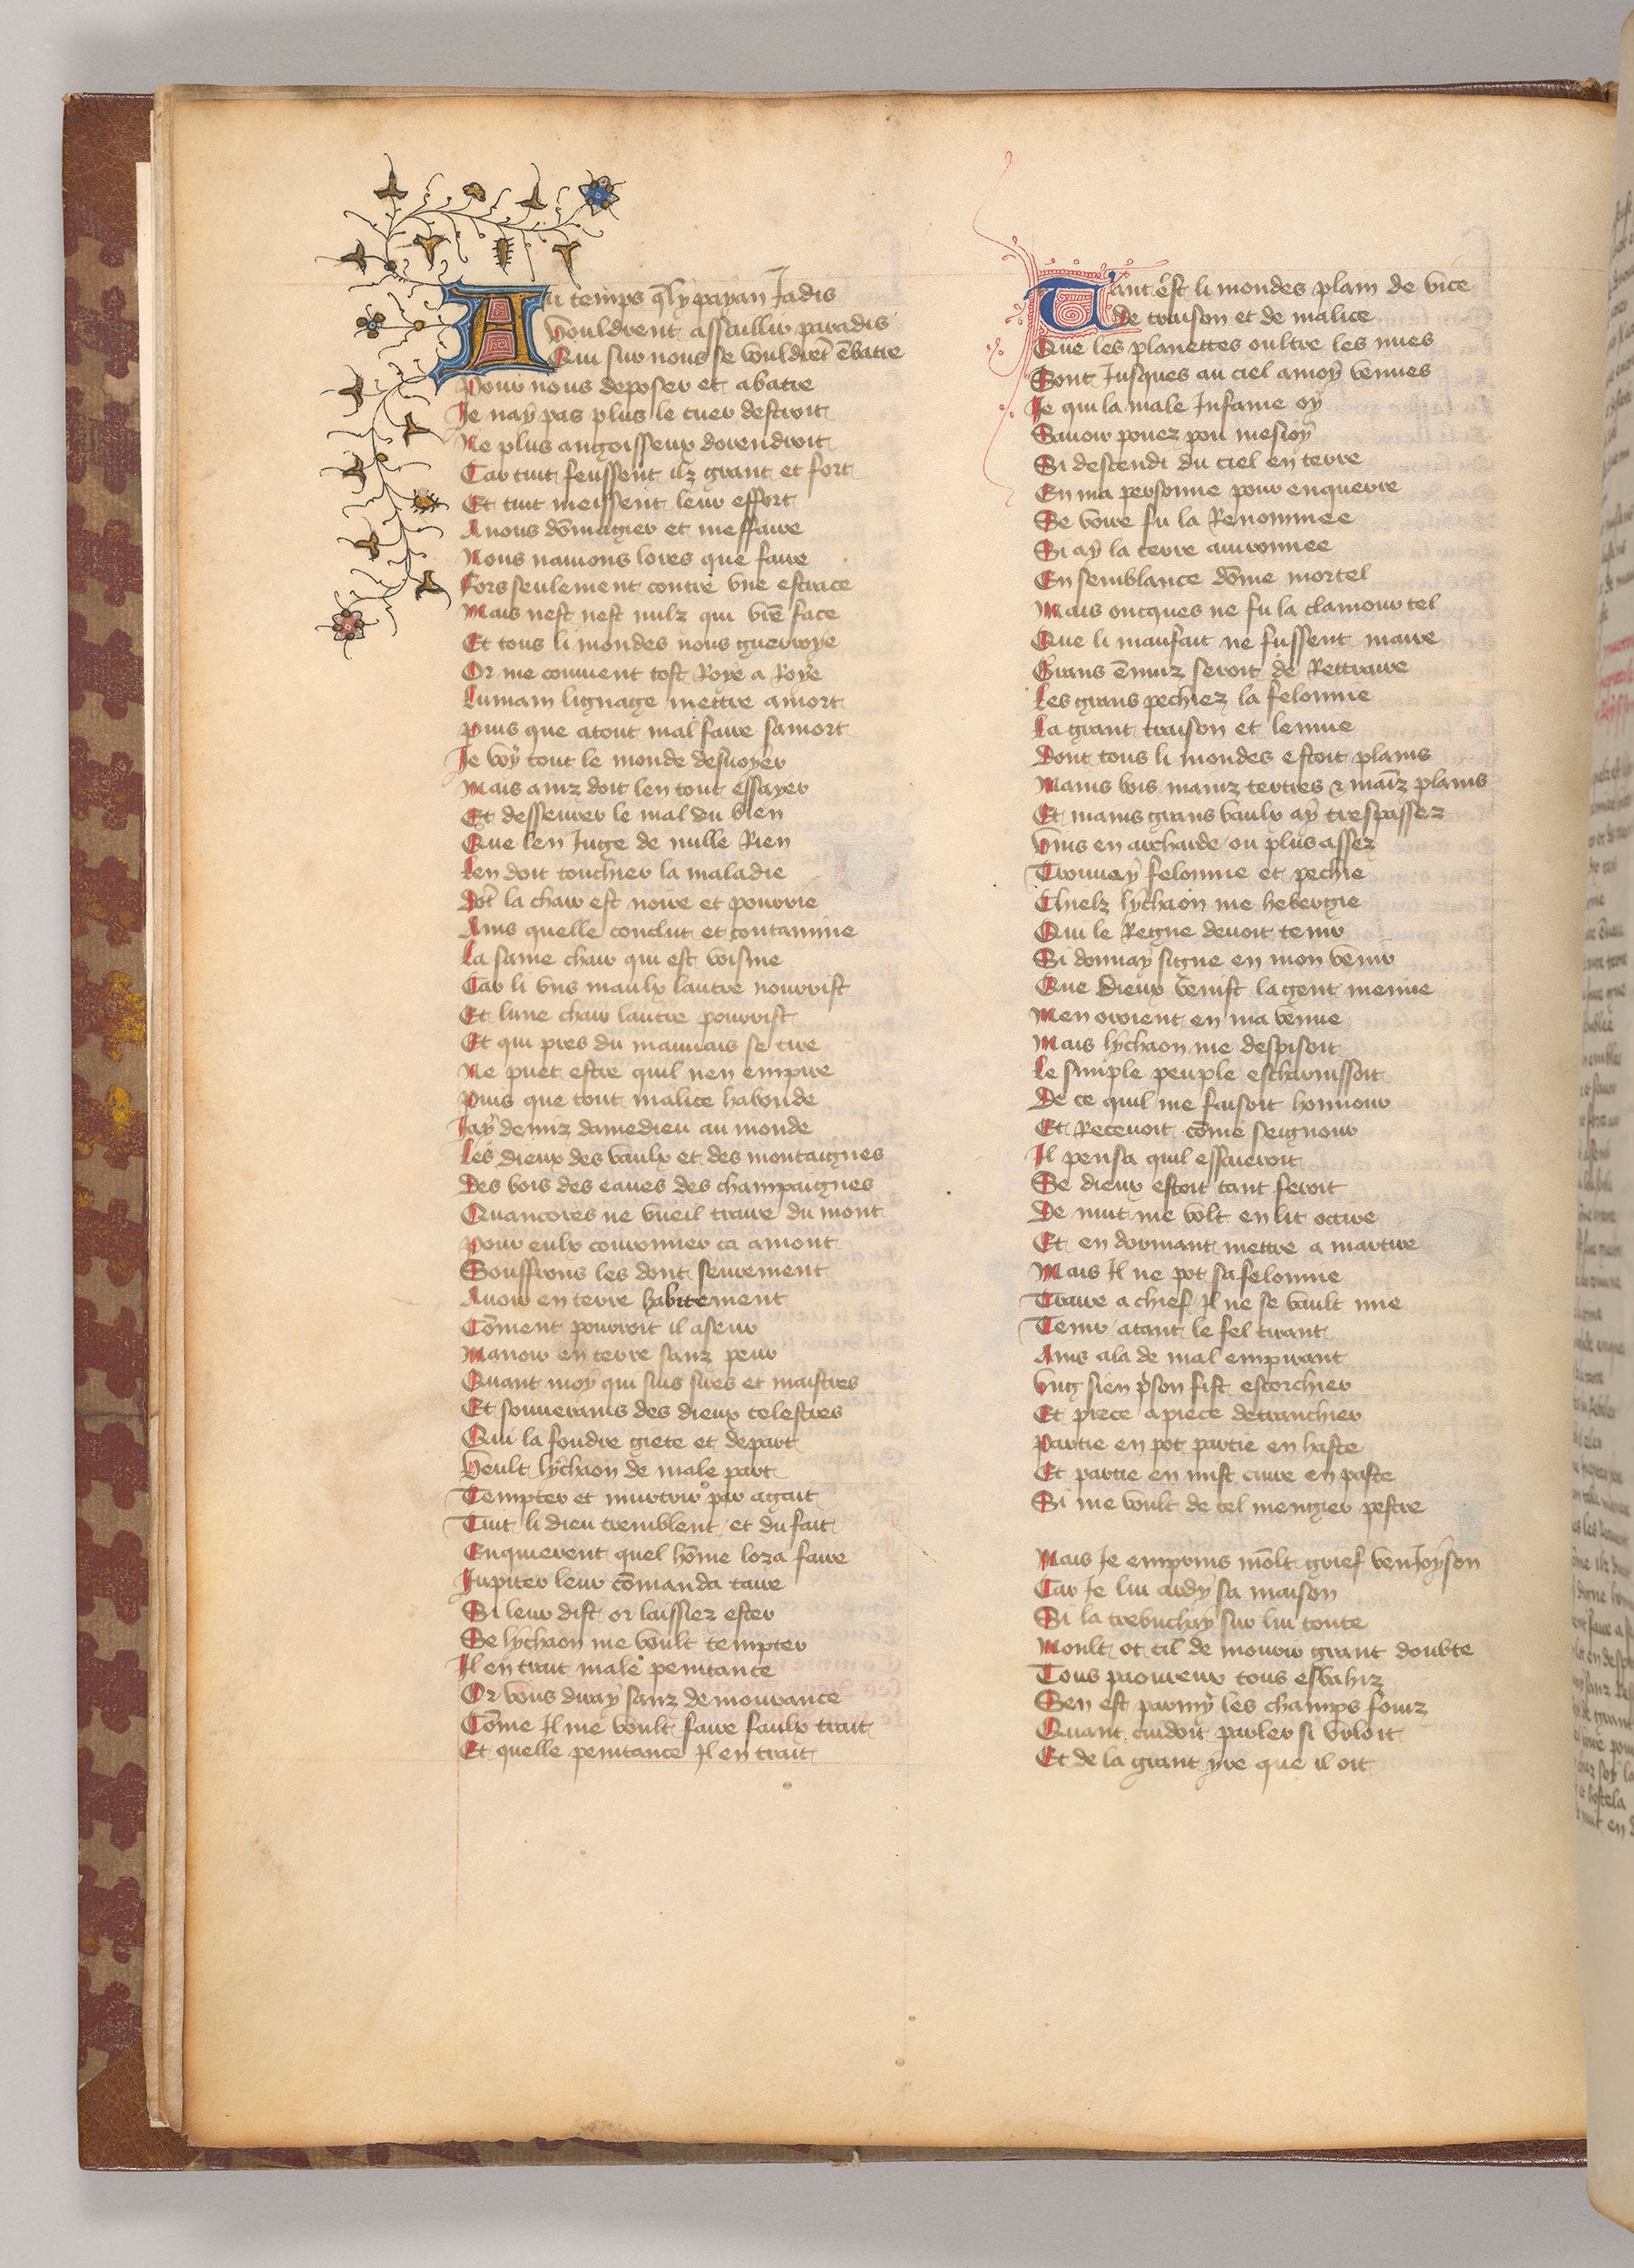 Au temps q̃ ly payan Jadis
Vouldrent assaillir paradis
Qui sur nous se vouldrẽt ẽbatre
Pour nous deposer et abatre
Je nay pas plus le cuer destroit
Ne plus angoisseux dorendroit
Car tuit feussent ilz grant et fort
Et tuit meissent leur effort
A nous dõmagier et meffaire
Nous nauions lores que faire
Fors seulement contre vne estrace
Mais nest nest nulz qui biẽ face
Et tous li mondes nous guerroye
Or me conuient tost Roye a Roye
Lumain lignage mettre amort
Puis que atout mal faire samort
Je voy tout le monde desuoyer
Mais ainz doit len tout essayer
Et desseurer le mal du bien
Que len Juge de nulle Rien
Len doit touchier la maladie
Dõt la chair est noire et pourrie
Ains quelle conclut et contamine
La saine chair qui est voisine
Car li vns maulx lautre nourrist
Et lune chair lautre pourrist
Et qui pres du mauuais se tire
Ne puet estre quil nen empire
Puis que tout malice habonde
Jay demiz damedieu au monde
Les dieux des vaulx et des montaignes
Des bois des eaues des champaignes
Quancores ne vueil traire du mont
Pour eulx couronner ca amont
Souffrons les dont seurement
Auoir en terre habitement
Cõment pourroit il aseur
Manoir en terre sanz peur
Quant moy qui suis sires et maistres
Et souuerains des dieux celestres
Qui la foudre giete et depart
Veult lychaon de male part
Tempter et murtrir par agait
Tuit li dieu tremblent et du fait
Enquierent quel hõme loza faire
Jupiter leur cõmanda taire
Si leur dist or laissiez ester
Se lychaon me voult tempter
Il en trait male penitance
Or vous diray sanz demourance
Cõme Il me voult faire faulx trait
Et quelle penitance Il en trait
Tant est li mondes plain de vice
De traison et de malice
Que les planettes oultre les nues
Sont Jusques au ciel amoy venues
Je qui la male Infame oy
Sauoir pouez pou mesioy
Si descendi du ciel en terre
En ma personne pour enquerre
Se voire fu la Renommee
Si ay la terre auironnee
En semblance dõme mortel
Mais oncques ne fu la clamour tel
Que li maufait ne fussent maire
Grans ẽnuiz seroit de Rettraire
Les grans pechiez la felonnie
La grant traison et lenuie
Dont tous li mondes estoit plains
Mains bois mainz tertres & maĩz plains
Et mains grans vaulx ay trespassez
Vins en archarde ou plus assez
Trouuay felonnie et pechie
Chielz lychaon me hebergie
Qui le Regne deuoit tenir
Si donnay signe en mon venir
Que dieux venist la gent menue
Men oroient en ma venue
Mais lychaon me despisoit
Le simple peuple escharnissoit
De ce quil me faisoit honnour
Et Receuoit cõme seignour
Il pensa quil essaieroit
Se dieux estoit tant feroit
De nuit me volt en lit occire
Et en dormant mettre a martire
Mais Il ne pot sa felonnie
Traire a chief Il ne se vault mie
Tenir atant le fel tirant
Ains ala de mal empirant
Vng sien p̃son fist escorchier
Et piece apiece detranchier
Partie en pot partie en haste
Et partie en mist cuire en paste
Si me voult de tel mengier pestre
Mais Je emprins mõlt grief venJoyson
Car Je lui ardy sa maison
Si la trebuchay sur lui toute
Moult ot cil de mourir grant doubte
Tous paoureux tous esbahiz
Sen est parmy les champs fouiz
Quant cuidoit parler si vrloit
Et de la grant yre que il oit